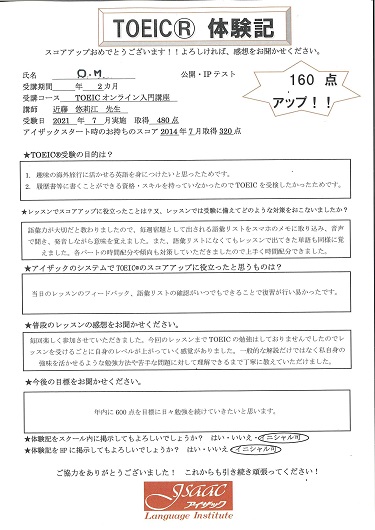 TOEIC® 体験記
スコアアップおめでとうございます！！よろしければ、感想をお聞かせください。
氏名 O.M 公開・IPテスト
受講期間 年 2カ月
受講コース TOEIC オンライン入門講座
講師 近藤 弥莉江 先生
受験日 2021 年 7 月実施 取得 480点
アイザックスタート時のお持ちのスコア 2014年7月取得320点
160 点
アップ！！
★TOEIC®受験の目的は？
1. 趣味の海外旅行に活かせる英語を身につけたいと思ったためです。
2. 履歴書等に書くことができる資格・スキルを持っていなかったのでTOEICを受検したかったためです。
★レッスンでスコアアップに役立ったことは？又、レッスンでは受験に備えてどのような対策をおこないましたか？
語彙力が大切だと教わりましたので、毎週宿題として出される語彙リストをスマホのメモに取り込み、音声
で聞き、発音しながら意味を覚えました。また、語彙リストになくてもレッスンで出てきた単語も同様に覚
えました。各パートの時間配分や傾向も対策していただきましたので上手く時間配分できました。
★アイザックのシステムでTOEIC®のスコアアップに役立ったと思うものは？
当日のレッスンのフィードバック、語彙リストの確認がいつでもできることで復習が行い易かったです。
★普段のレッスンの感想をお聞かせください。
毎回楽しく参加させていただきました。今回のレッスンまでTOEICの勉強はしておりませんでしたのでレ
ッスンを受けるごとに自身のレベルが上がっていく感覚がありました。一般的な解説だけではなく私自身の
強味を活かせるような勉強方法や苦手な問題に対して理解できるまで丁寧に教えていただけました。
★今後の目標をお聞かせください。
年内に600点を目標に日々勉強を続けていきたいと思います。
★体験記をスクール内に掲示してもよろしいでしょうか？ はい・いいえ・イニシャル可
★体験記をHPに掲示してもよろしいでしょうか？ はい・いいえ イニシャル可
ご協力をありがとうございました！ これからも引き続き頑張ってください！
Isaac
アイザック
Language Institute